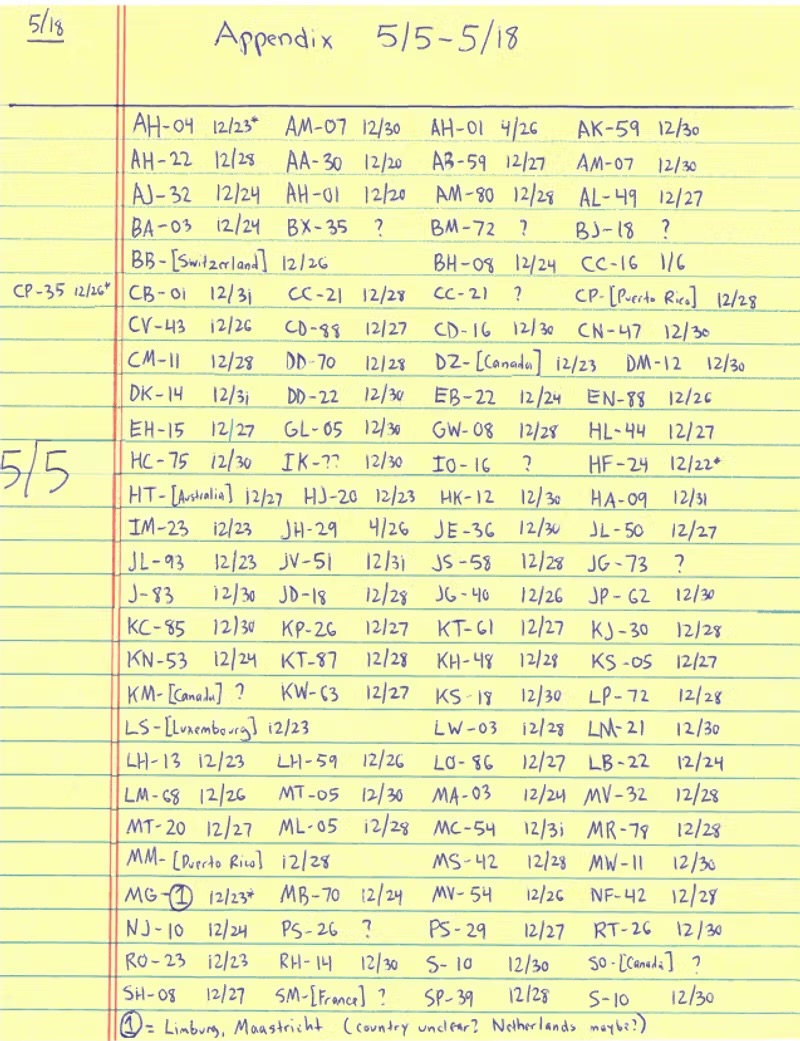 5/18 Appendix 5/5-5/18
AH-04 12/23* AM-07 12/30 AH-01 4/26 AK-59 12/30
AH-22 12/28 AA-30 12/20 AB-59 12/27 AM-07 12/30
AJ-32 12/24 AH-01 12/20 AM-80 12/28 AL-49 12/27
BA-03 12/24 BX-35 ? BM-72 ? BJ-18 ?
BB-[Switzerland] 12/26 BH-08 12/24 CC-16 1/6
CP-35 12/26* CB-01 12/31 CC-21 12/28 CC-21 ? CP-[Puerto Rico] 12/28
CV-43 12/26 CD-88 12/27 CD-16 12/30 CN-47 12/30
CM-11 12/28 DD-70 12/28 DZ-[Canada] 12/23 DM-12 12/30
DK-14 12/31 DD-22 12/30 EB-22 12/24 EN-88 12/26
EH-15 12/27 GL-05 12/30 GW-08 12/28 HL-44 12/27
5/5 HC-75 12/30 IK-?? 12/30 IO-16 ? HF-24 12/22*
HT-[Australia] 12/27 HJ-20 12/23 HK-12 12/30 HA-09 12/31
IM-23 12/23 JH-29 4/26 JE-36 12/30 JL-50 12/27
JL-93 12/23 JV-51 12/31 JS-58 12/28 JG-73 ?
J-83 12/30 JD-18 12/28 JG-40 12/26 JP-62 12/30
KC-85 12/30 KP-26 12/27 KT-61 12/27 KJ-30 12/28
KN-53 12/24 KT-87 12/28 KH-48 12/28 KS-05 12/27
KM-[Canada] ? KW-63 12/27 KS-18 12/30 LP-72 12/28
LS-[Luxembourg] 12/23 LW-03 12/28 LM-21 12/30
LH-13 12/23 LH-59 12/26 LO-86 12/27 LB-22 12/24
LM-68 12/26 MT-05 12/30 MA-03 12/24 MV-32 12/28
MT-20 12/27 ML-05 12/28 MC-54 12/31 MR-78 12/28
MM-[Puerto Rico] 12/28 MS-42 12/28 MW-11 12/30
MG-① 12/23* MB-70 12/24 MV-54 12/26 NF-42 12/28
NJ-10 12/24 PS-26 ? PS-29 12/27 RT-26 12/30
RO-23 12/23 RH-14 12/30 S-10 12/30 SO-[Canada] ?
SH-08 12/27 SM-[France] ? SP-39 12/28 S-10 12/30
① = Limburg, Maastricht (country unclear? Netherlands maybe?)